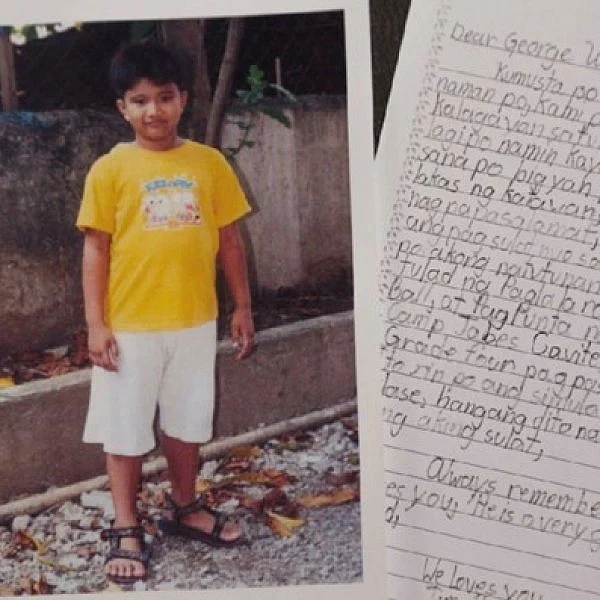 Dear George W
Kumusta po
naman po, Kami p
lagi po namin Kay
sana po bigyah
lakas ng katawan,
nag papasalamat,
po akong natutunan
tulad ng Paglalaro
Ball, at Pag Punta n
Camp Tabes Cavite
Grade four pag pas
to rin po ang simula
lase, hangang dito na
ng aking sulat,
Always remembe
es you, He is a very g
d,
We loves you